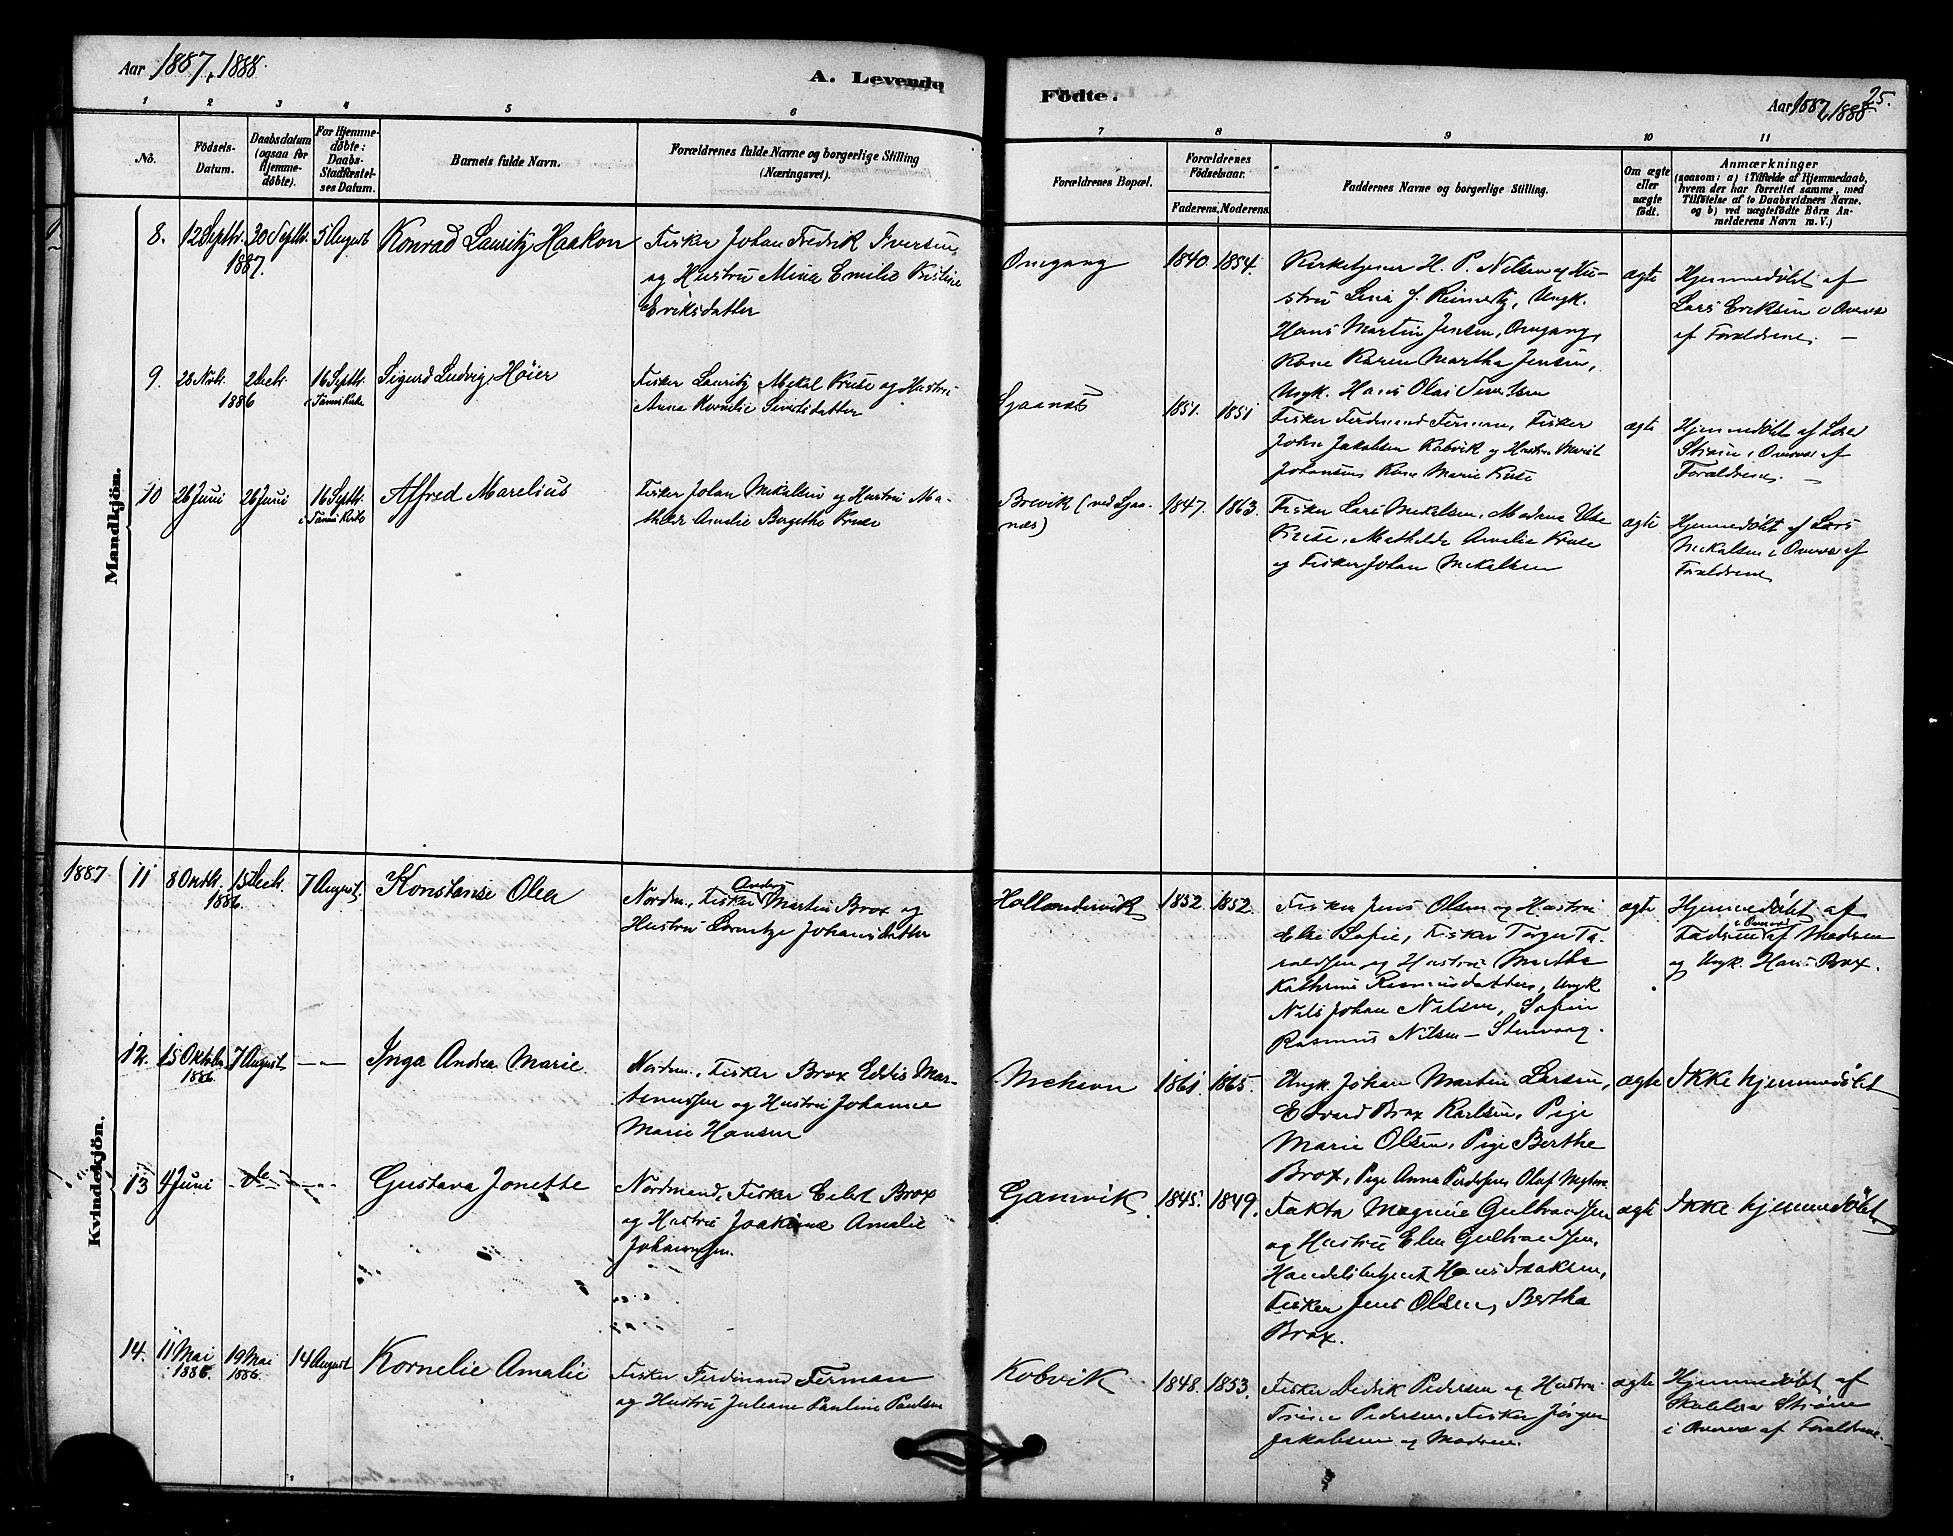 Aar 1887, 1888.
A. Levende
Födte.
Aar 1887, 1888
25.
1 2 3 4 5 6 7 8 9 10 11
No.
Fødsels-
Datum.
Daabsdatum
(ogsaa for
Hjemme-
døbte).
For Hjemme-
døbte:
Daabs-
Stadfæstel-
ses Datum.
Barnets fulde Navn.
Forældrenes fulde Navne og borgerlige Stilling
(Næringsvei).
Forældrenes Bopæl.
Forældrenes
Fødselsaar.
Faderens. Moderens.
Faddernes Navne og borgerlige Stilling.
Om ægte
eller
uægte
født.
Anmærkninger
(saasom: a) i Tilfælde af Hjemmedaab,
hvem der har forrettet samme, med
Tilføielse af to Daabsvidners Navne,
og b) ved uægtefødte Börn An-
melderens Navn m. V.)
Mandkjön.
8. 12 Septbr. 30 Septbr. 5 August
1887.
Konrad Lauritz Haakon
Fisker Johan Fredrik Iversen,
og Hustru Mina Emilie Kristine
Eriksdatter
Omgang
1840. 1854.
Kirketjener H. P. Nilsen og Hu-
stru Lina J. Reinertz, Ungk.
Hans Martin Jensen, Omgang,
Kone Karen Martha Jensen,
Ungk. Hans Olai Iversen
ægte
Hjemmedøbt af
Lars Eriksen i Overvær
af Forældrene. —
9. 28 Novbr. 2 Decbr. 16 Septbr.
1886
i Tanens Kirke
Sigurd Ludvig Høier
Fisker Lauritz Mekal Kruse og Hustru
Anna Kornelie Sivertsdatter
1851. 1851
Fisker Ferdinand Ferman, Fisker
John Jakobsen Kobvik og Hustru Marit
Johansen, Kone Marie Kruse
ægte
Hjemmedøbt af Lærer
Strøm i Overvær af
Forældrene. —
10 26 Juni 26 Juni 16 Septbr.
i Tanens Kirke
Alfred Marelius
Fisker Johan Mikalsen og Hustru Ma-
thilde Amalie Bergethe Kruse
Brevik (ved Ljaa-
næs)
1847. 1863.
Fisker Lars Mekalsen, Madame Else
Kruse, Mathilde Amalie Kruse
og Fisker Johan Mekalsen
ægte
Hjemmedøbt af Lars
Mekalsen i Overvær af
Forældrene
Kvindekjön.
1887 11 8 Oktbr. 15 Decbr. 7 August.
1886.
Konstanse Olea
Nordm., Fisker Anders Martin Brox og
Hustru Lorentze Johansdatter
Hollendervik
1852. 1852.
Fisker Jens Olsen og Hustru
Else Sofie, Fisker Torger Ta-
raldsen og Hustru Marthe
Kathrine Rasmusdatter, Ungk
Nils Johan Nilsen,
Rasmus Nilsen — Stenvaag.
ægte
Hjemmedøbt af
Faderen i Overvær af Moderen
og Ungk. Hans Brox.
12. 15 Oktober 7 August — —
1886.
Inga Andrea Marie
Nordm., Fisker Brox Eddis Mar-
tinussen og Hustru Johanna
Marie Hansen
Mehavn
1861. 1865.
Ungk. Johan Martin Larsen,
Edvard Brox Karlsen, Pige
Marie Olsen, Pige Berthe
Brox, Pige Anna Pedersen, Olaf
ægte
Ikke hjemmedøbt
13 4 Juni — do — — —
Gustava Jonette
Nordmand, Fisker Edvl. Brox
og Hustru Joakime Amalie
Johannesen.
Gamvik
1845. 1849.
Faktor Magnus Gulbrandsen
og Hustru Elen Gulbrandsen,
Handelsbetjent Hans Isaksen,
Fisker Jens Olsen, Bertha
Brox.
ægte
Ikke hjemmedøbt
14. 11 Mai 19 Mai 14 August
1886. 1886.
Kornelie Amalie
Fisker Ferdinand Ferman
og Hustru Juliane Pauline Paulsen
Kobvik
1848. 1853.
Fisker Didrik Pedersen og Hustru
Trine Pedersen, Fisker Jørgen
Jakobsen og Moderen.
ægte
Hjemmedøbt af
Skolelærer Strøm
i Overvær af Forældrene.